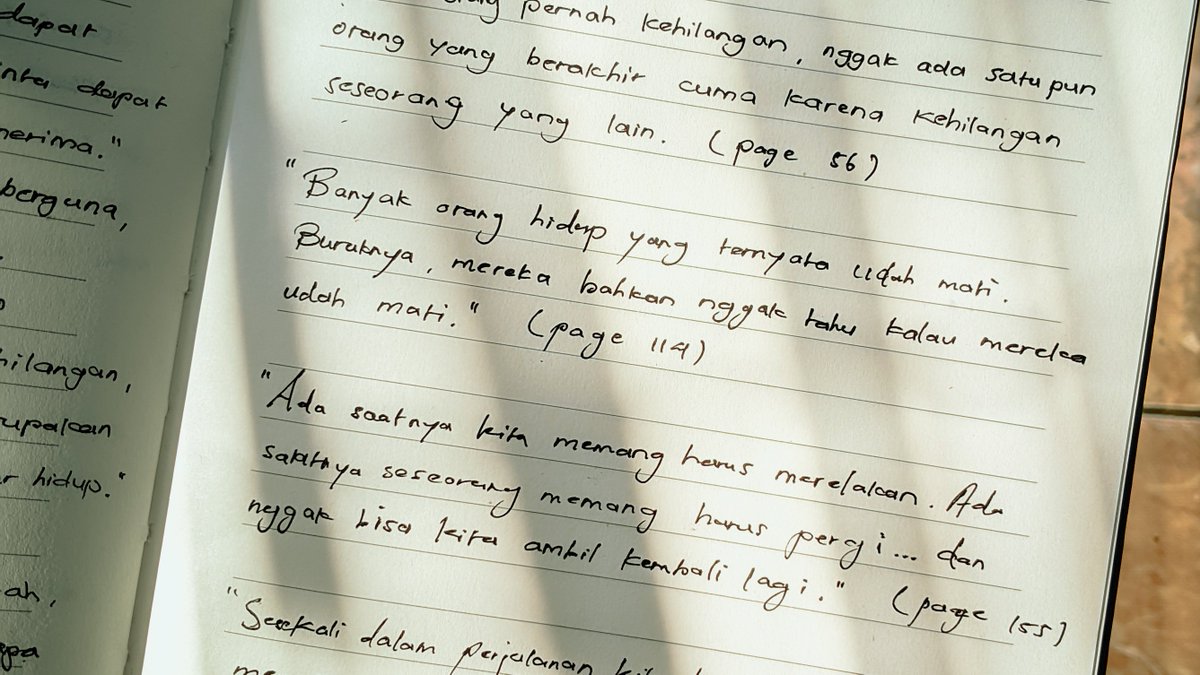 dapat
dapat
nerima."
berguna,
hilangan,
upakan
hidup."
ah,
pernah kehilangan, nggak ada satupun
orang yang berakhir cuma karena kehilangan
seseorang yang lain. (page 56)
"Banyak orang hidup yang ternyata udah mati.
Buruknya, mereka bahkan nggak tahu kalau mereka
udah mati." (page 114)
"Ada saatnya kita memang harus merelakan. Ada
saatnya seseorang memang harus pergi... dan
nggak bisa kita ambil kembali lagi." (page 155)
"Sesekali dalam perjalanan